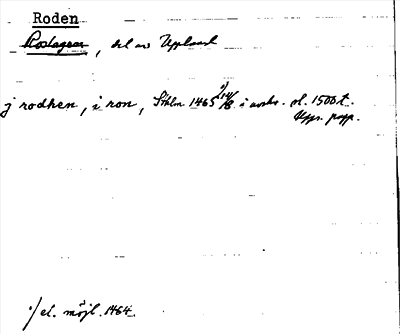 Roden
Roslagen, del av Uppland
j rodhen, i ron, Sthlm 1465 14/8 i avskr. sl. 1500 t.
Upps. papp.
*/ el. möjl. 1464.